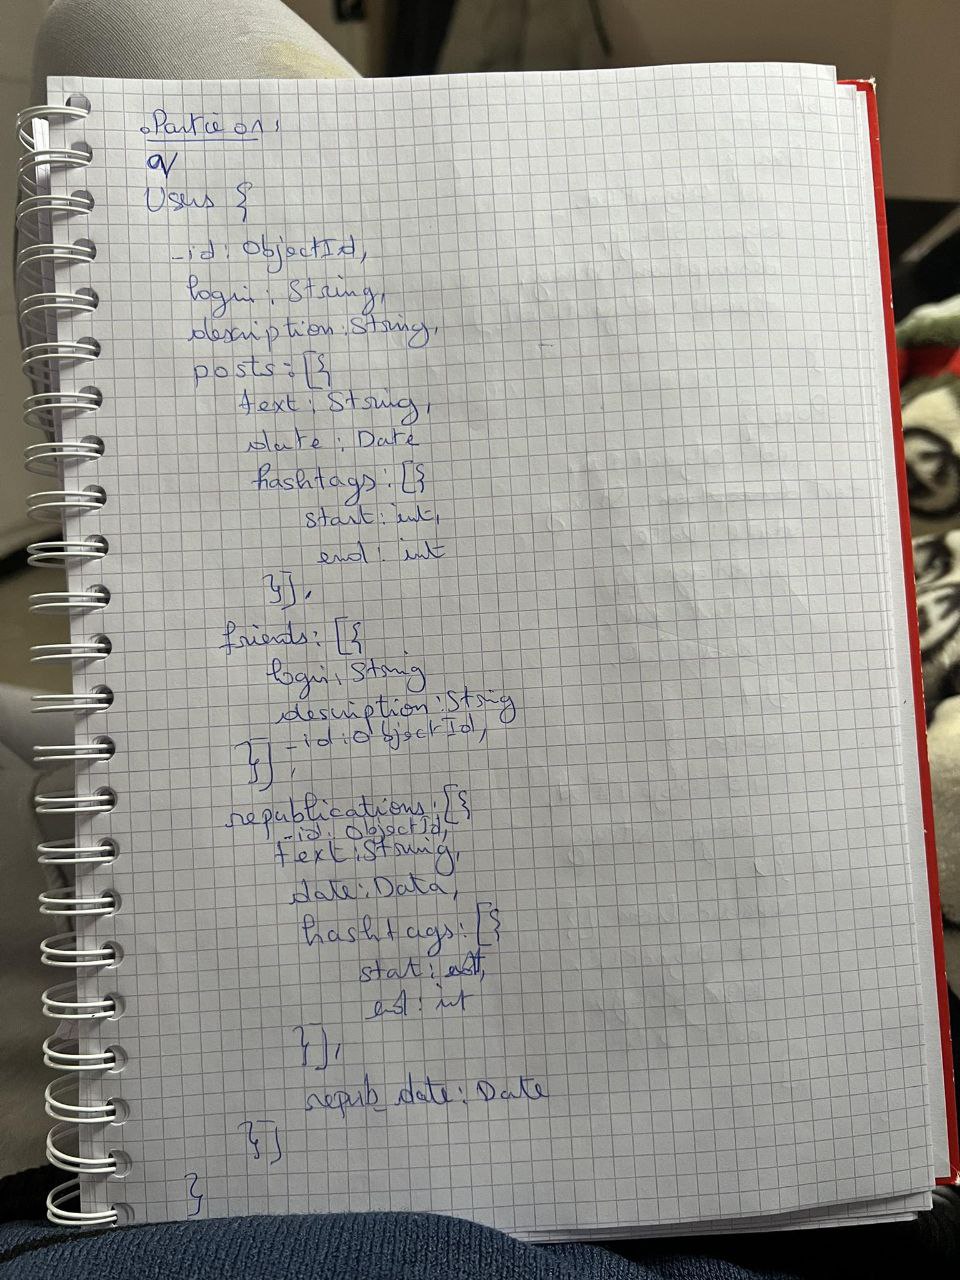 Partie 01:
a/
Users {
_id: ObjectId,
login: String,
description: String,
posts: [{
text: String,
date: Date
hashtags: [{
start: int,
end: int
}],
friends: [{
login: String
description: String
_id: ObjectId,
}],
republications: [{
_id: ObjectId,
text: String,
date: Data,
hashtags: [{
stat:
end: int
}],
repub_date: Date
}]
}